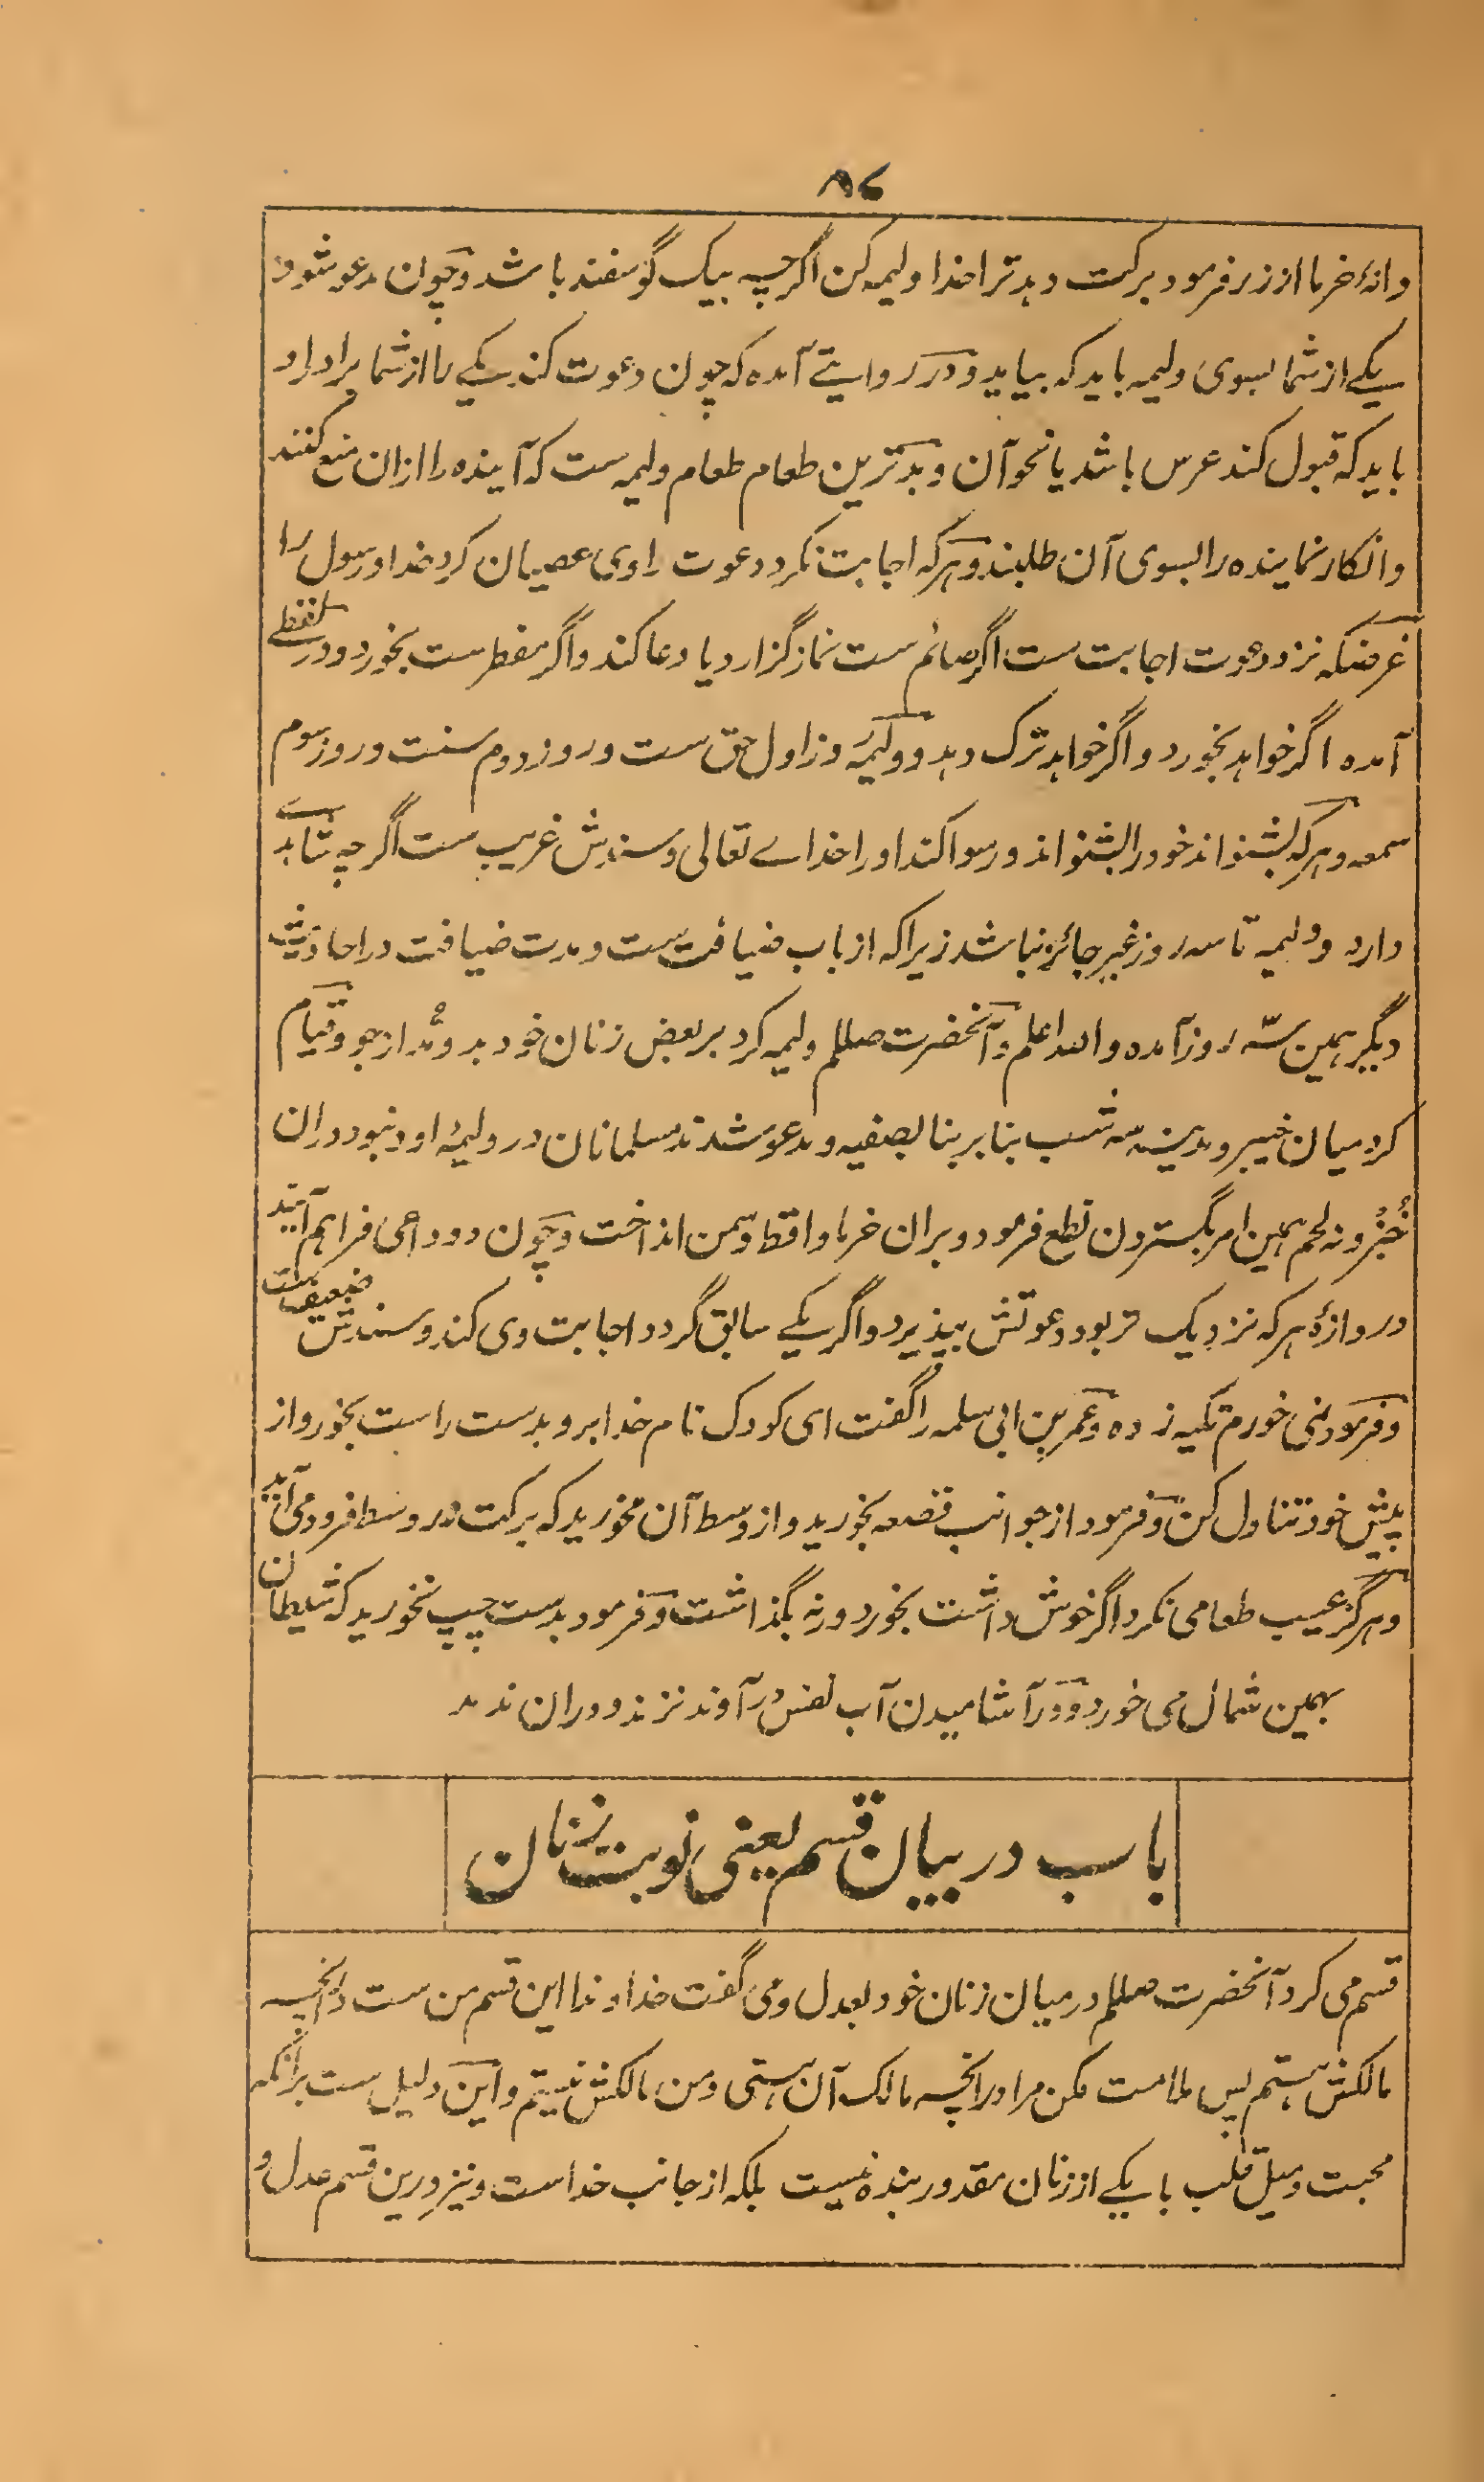 ۸۶
دانهٔ خرما از زر فرمود برکت دهد ترا خدا ولیمه کن اگرچه بیک گوسفند باشد و چون مدعو شود
یکے از شما بسوی ولیمه باید که بیاید و در روایتے آمده که چون دعوت کند یکے را از شما برادر او
باید که قبول کند عرس باشد یا نحو آن و بدترین طعام طعام ولیمه ست که آینده را ازان منع کنند
و انکار نماینده را بسوی آن طلبند و هر که اجابت نکرد دعوت را وی عصیان کرد خدا و رسول را
غرضکه نزد دعوت اجابت ست اگر صائم ست نماز گزارد یا دعا کند و اگر مفطر ست بخورد و در لفظے
آمده اگر خواهد بخورد و اگر خواهد ترک دهد و ولیمهٔ روز اول حق ست و روز دوم سنت و روز سوم
سمعه و هر که بشنواند خود را بشنواند و رسوا کند او را خداے تعالی و سندش غریب ست اگرچه شاهدے
دارد و ولیمه تا سه روز غیر جائز نباشد زیرا که از باب ضیافت ست و مدت ضیافت در احادیث
دیگر همین سه روز آمده والله اعلم و آنحضرت صللم ولیمه کرد بر بعض زنان خود بدو مُد از جو و قیام
کرد میان خیبر و مدینه سه شب بنا بر بنا بصفیه و مدعو شدند مسلمانان در ولیمهٔ او و نبود دران
خُبْز و نه لحم همین امر بگستردن نطع فرمود و بران خرما و اقط و سمن انداخت و چون دو داعی فراهم آیند
دروازهٔ هر که نزدیک تر بود دعوتش بپذیرد و اگر یکے سابق گردد اجابت وی کند و سندش ضعیف ست
و فرمود نمی خورم تکیه زده و عمر بن ابی سلمه را گفت ای کودک نام خدا بر و بدست راست بخور و از
پیش خود تناول کن و فرمود از جوانب قصعه بخورید و از وسط آن مخورید که برکت در وسط فرود می آید
و هرگز عیب طعامی نکرد اگر خوش داشت بخورد ورنه بگذاشت و فرمود بدست چپ نخورید که شیطان
بهمین شمال می خورد و در آشامیدن آب نفس در آوند نزند و دران ندمد
باب در بیان قسم یعنی نوبت زنان
قسم می کرد آنحضرت صللم در میان زنان خود بعدل و می گفت خداوندا این قسم من ست در آنچه
مالکش هستم پس ملامت مکن مرا در آنچه مالک آن هستی و من مالکش نیستم و این دلیل ست بر آنکه
محبت و میل قلب با یکے از زنان مقدور بنده نیست بلکه از جانب خداست و نیز درین قسم عدل و